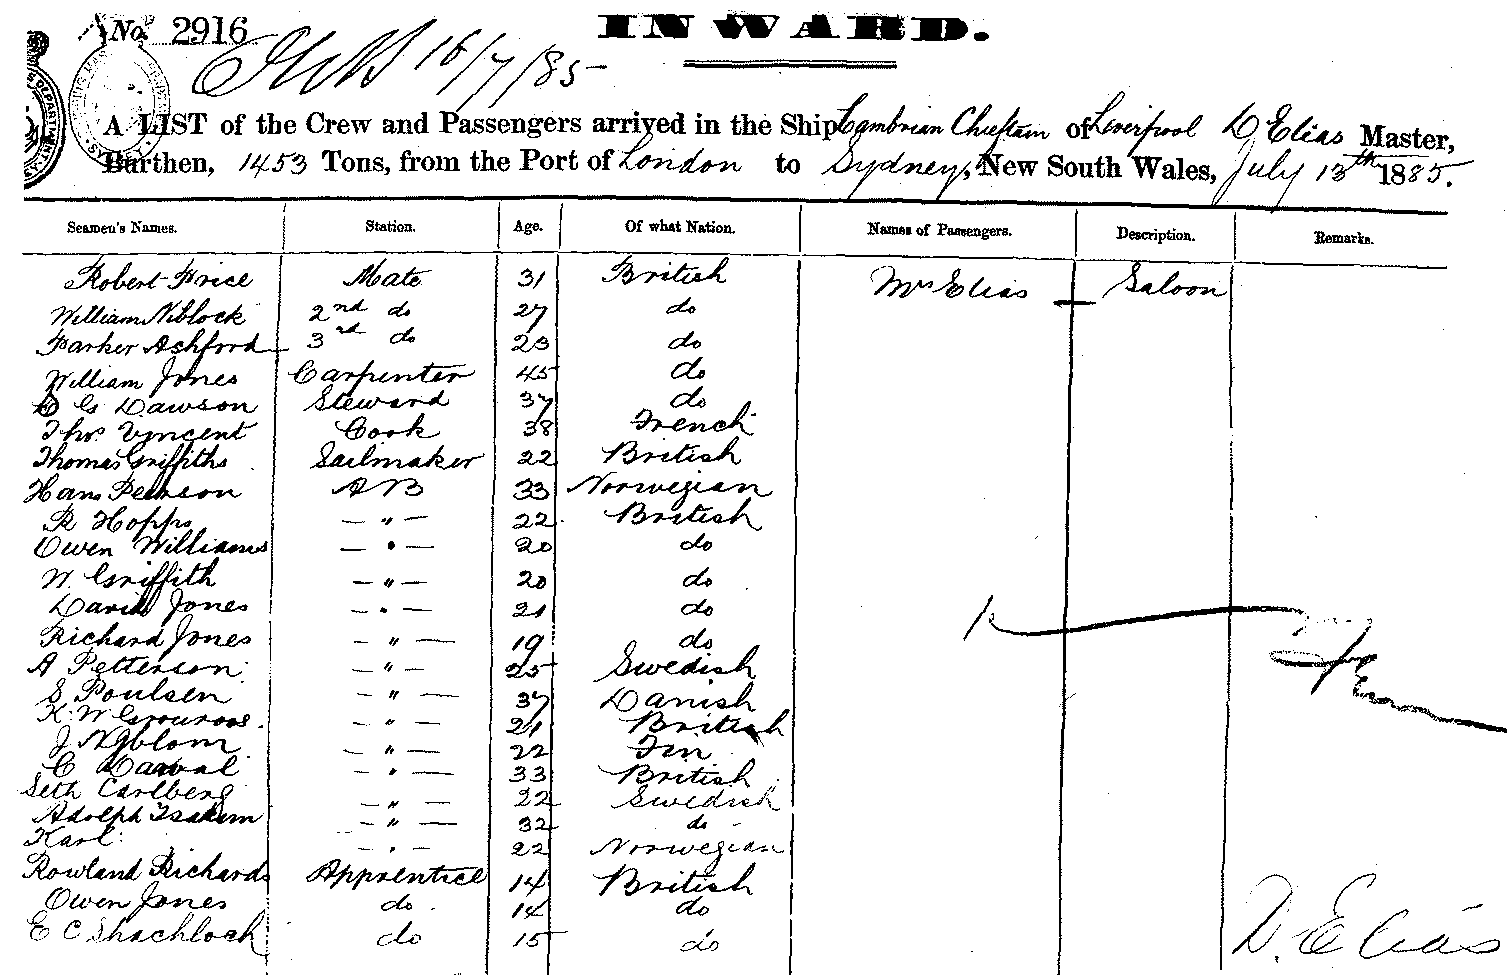 No. 2916
INWARD.
16/7/85
A LIST of the Crew and Passengers arrived in the Ship Cambrian Chieftain of Liverpool D Elias Master,
Burthen, 1453 Tons, from the Port of London to Sydney, New South Wales, July 13th 1885.
Seamen's Names. Station. Age. Of what Nation. Names of Passengers. Description. Remarks.
Robert Price Mate 31 British Mrs Elias — Saloon
William Niblock 2nd do 27 do
Parker Ashford 3rd do 23 do
William Jones Carpenter 45 do
G Dawson Steward 37 do
Thos. Vincent Cook 38 French
Thomas Griffiths Sailmaker 22 British
Hans Pearson AB 33 Norwegian
R Hopps — " — 22 British
Owen Williams — " — 20 do
W. Griffith — " — 20 do
David Jones — " — 21 do
Richard Jones — " — 19 do
A Petterson — " — 25 Swedish
S Poulsen — " — 37 Danish
K. W. — " — 21 British
J Nyblom — " — 22 Fin
C — " — 33 British
Seth Carlberg — " — 22 Swedish
Adolph — " — 32 do
Karl — " — 22 Norwegian
Rowland Richards Apprentice 14 British
Owen Jones do 14 do
E C Shachloch do 15 do
D. Elias